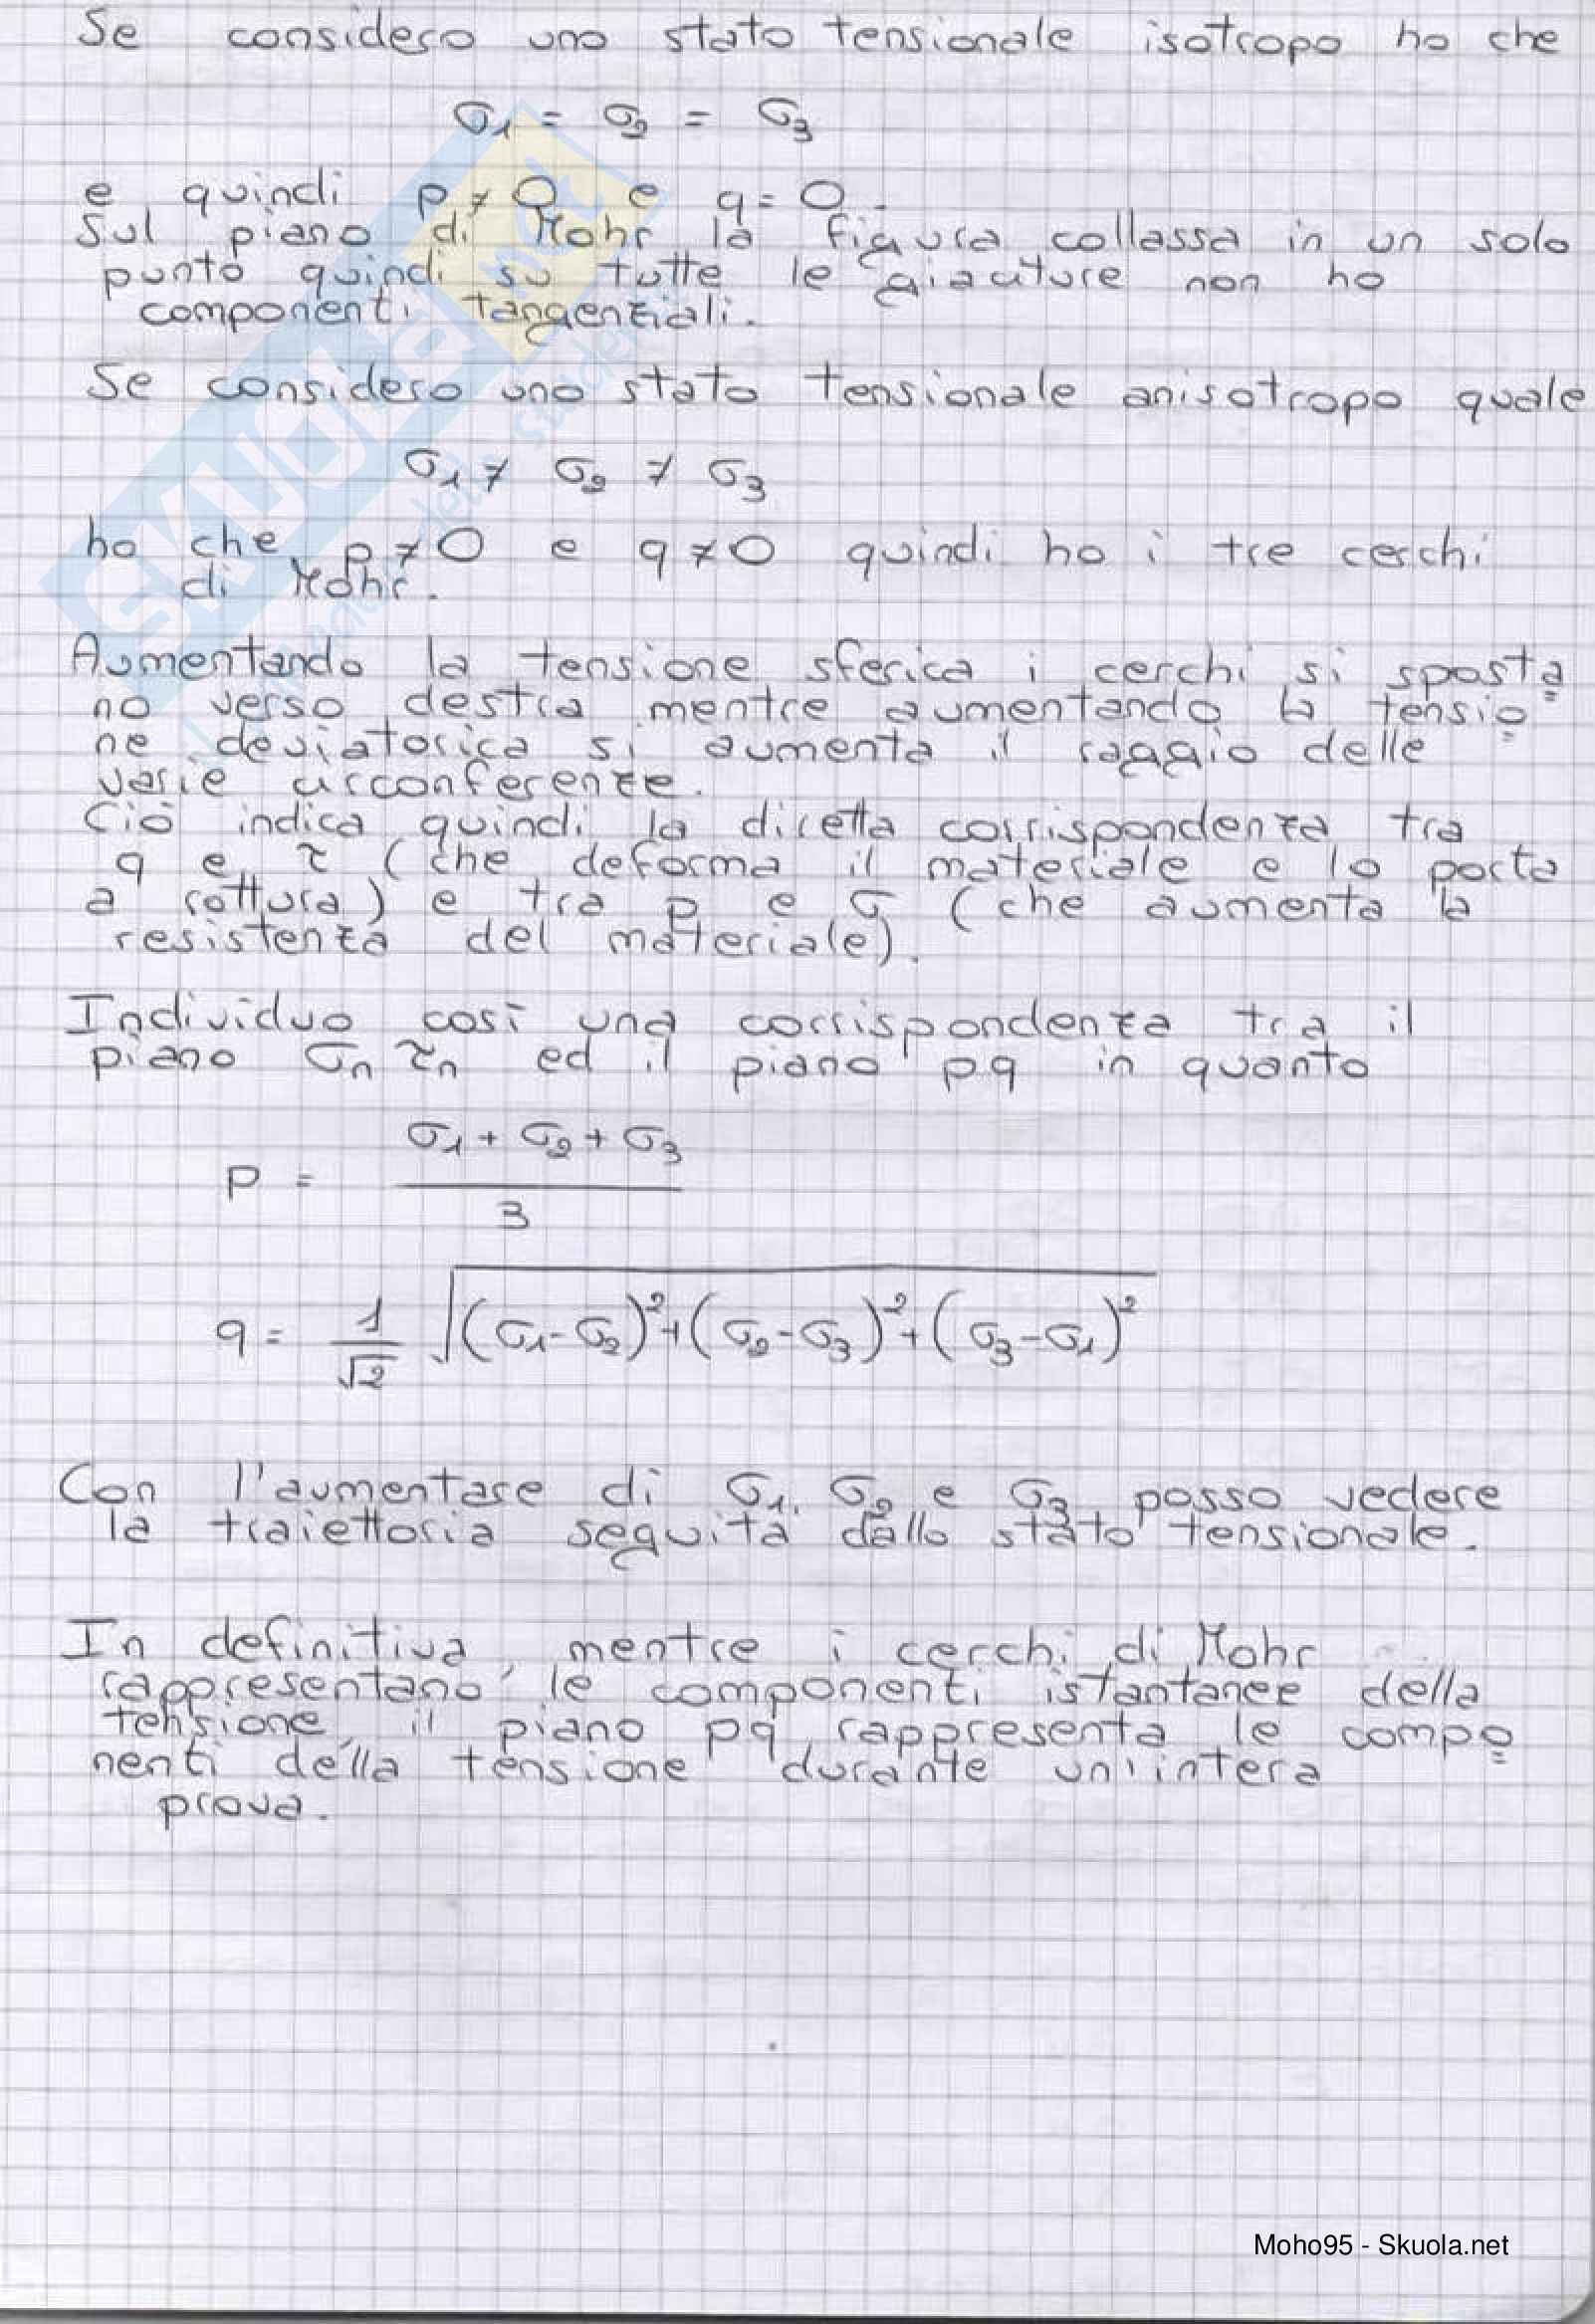 Se considero uno stato tensionale isotropo ho che
σ1 = σ2 = σ3
e quindi p ≠ 0 e q = 0.
Sul piano di Mohr la figura collassa in un solo
punto quindi su tutte le giaciture non ho
componenti tangenziali.
Se considero uno stato tensionale anisotropo quale
σ1 ≠ σ2 ≠ σ3
ho che p ≠ 0 e q ≠ 0 quindi ho i tre cerchi
di Mohr.
Aumentando la tensione sferica i cerchi si sposta
no verso destra mentre aumentando la tensio
ne deviatorica si aumenta il raggio delle
varie circonferenze.
Ciò indica quindi la diretta corrispondenza tra
q e τ (che deforma il materiale e lo porta
a rottura) e tra p e σ (che aumenta la
resistenza del materiale).
Individuo così una corrispondenza tra il
piano σn τn ed il piano pq in quanto
p = (σ1 + σ2 + σ3) / 3
q = 1/√2 √((σ1 - σ2)² + (σ2 - σ3)² + (σ3 - σ1)²)
Con l'aumentare di σ1, σ2 e σ3 posso vedere
la traiettoria seguita dallo stato tensionale.
In definitiva, mentre i cerchi di Mohr
rappresentano le componenti istantanee della
tensione, il piano pq rappresenta le compo
nenti della tensione durante un'intera
prova.
SKUOLA.net
Moho95 - Skuola.net